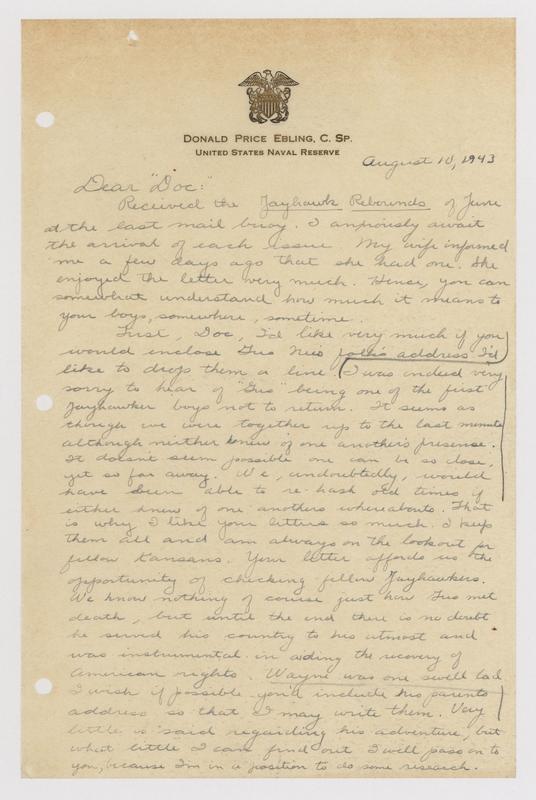 DONALD PRICE EBLING, C. SP.
UNITED STATES NAVAL RESERVE
August 10, 1943
Dear "Doc:"
Received the Jayhawk Rebounds of June
at the last mail buoy. I anxiously await
the arrival of each issue. My wife informed
me a few days ago that she had one. She
enjoyed the letter very much. Hence, you can
somewhat understand how much it means to
your boys, somewhere, sometime.
First, Doc, I'd like very much if you
would enclose Gus Nies folk's address I'd
like to drop them a line. (I was indeed very
sorry to hear of "Gus" being one of the first
Jayhawker boys not to return. It seems as
though we were together up to the last minute
although neither knew of one another's presense.
It doesn't seem possible one can be so close,
yet so far away. We, undoubtedly, would
have been able to re-hash old times if
either knew of one anothers whereabouts. That
is why I like your letters so much. I keep
them all and am always on the lookout for
fellow Kansans. Your letter affords us the
opportunity of checking fellow Jayhawkers.
We know nothing of course just how Gus met
death, but until the end there is no doubt
he served his country to his utmost and
was instrumental in aiding the recovery of
American rights. Wayne was one swell lad
I wish if possible you'd include his parents
address so that I may write them. Very
little is said regarding his adventure, but
what little I can find out I will pass on to
you, because I'm in a position to do some research.